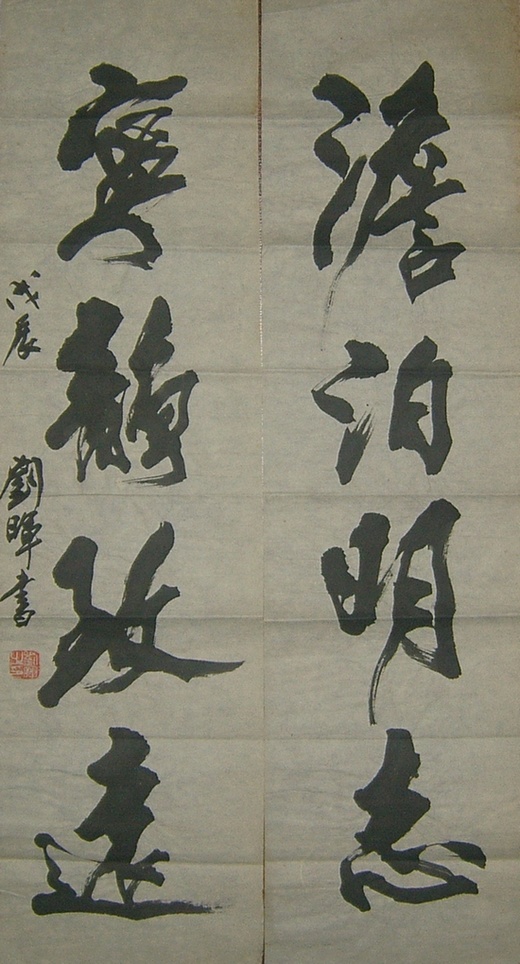 澹泊明志
寧靜致遠
戊辰
劉暉書